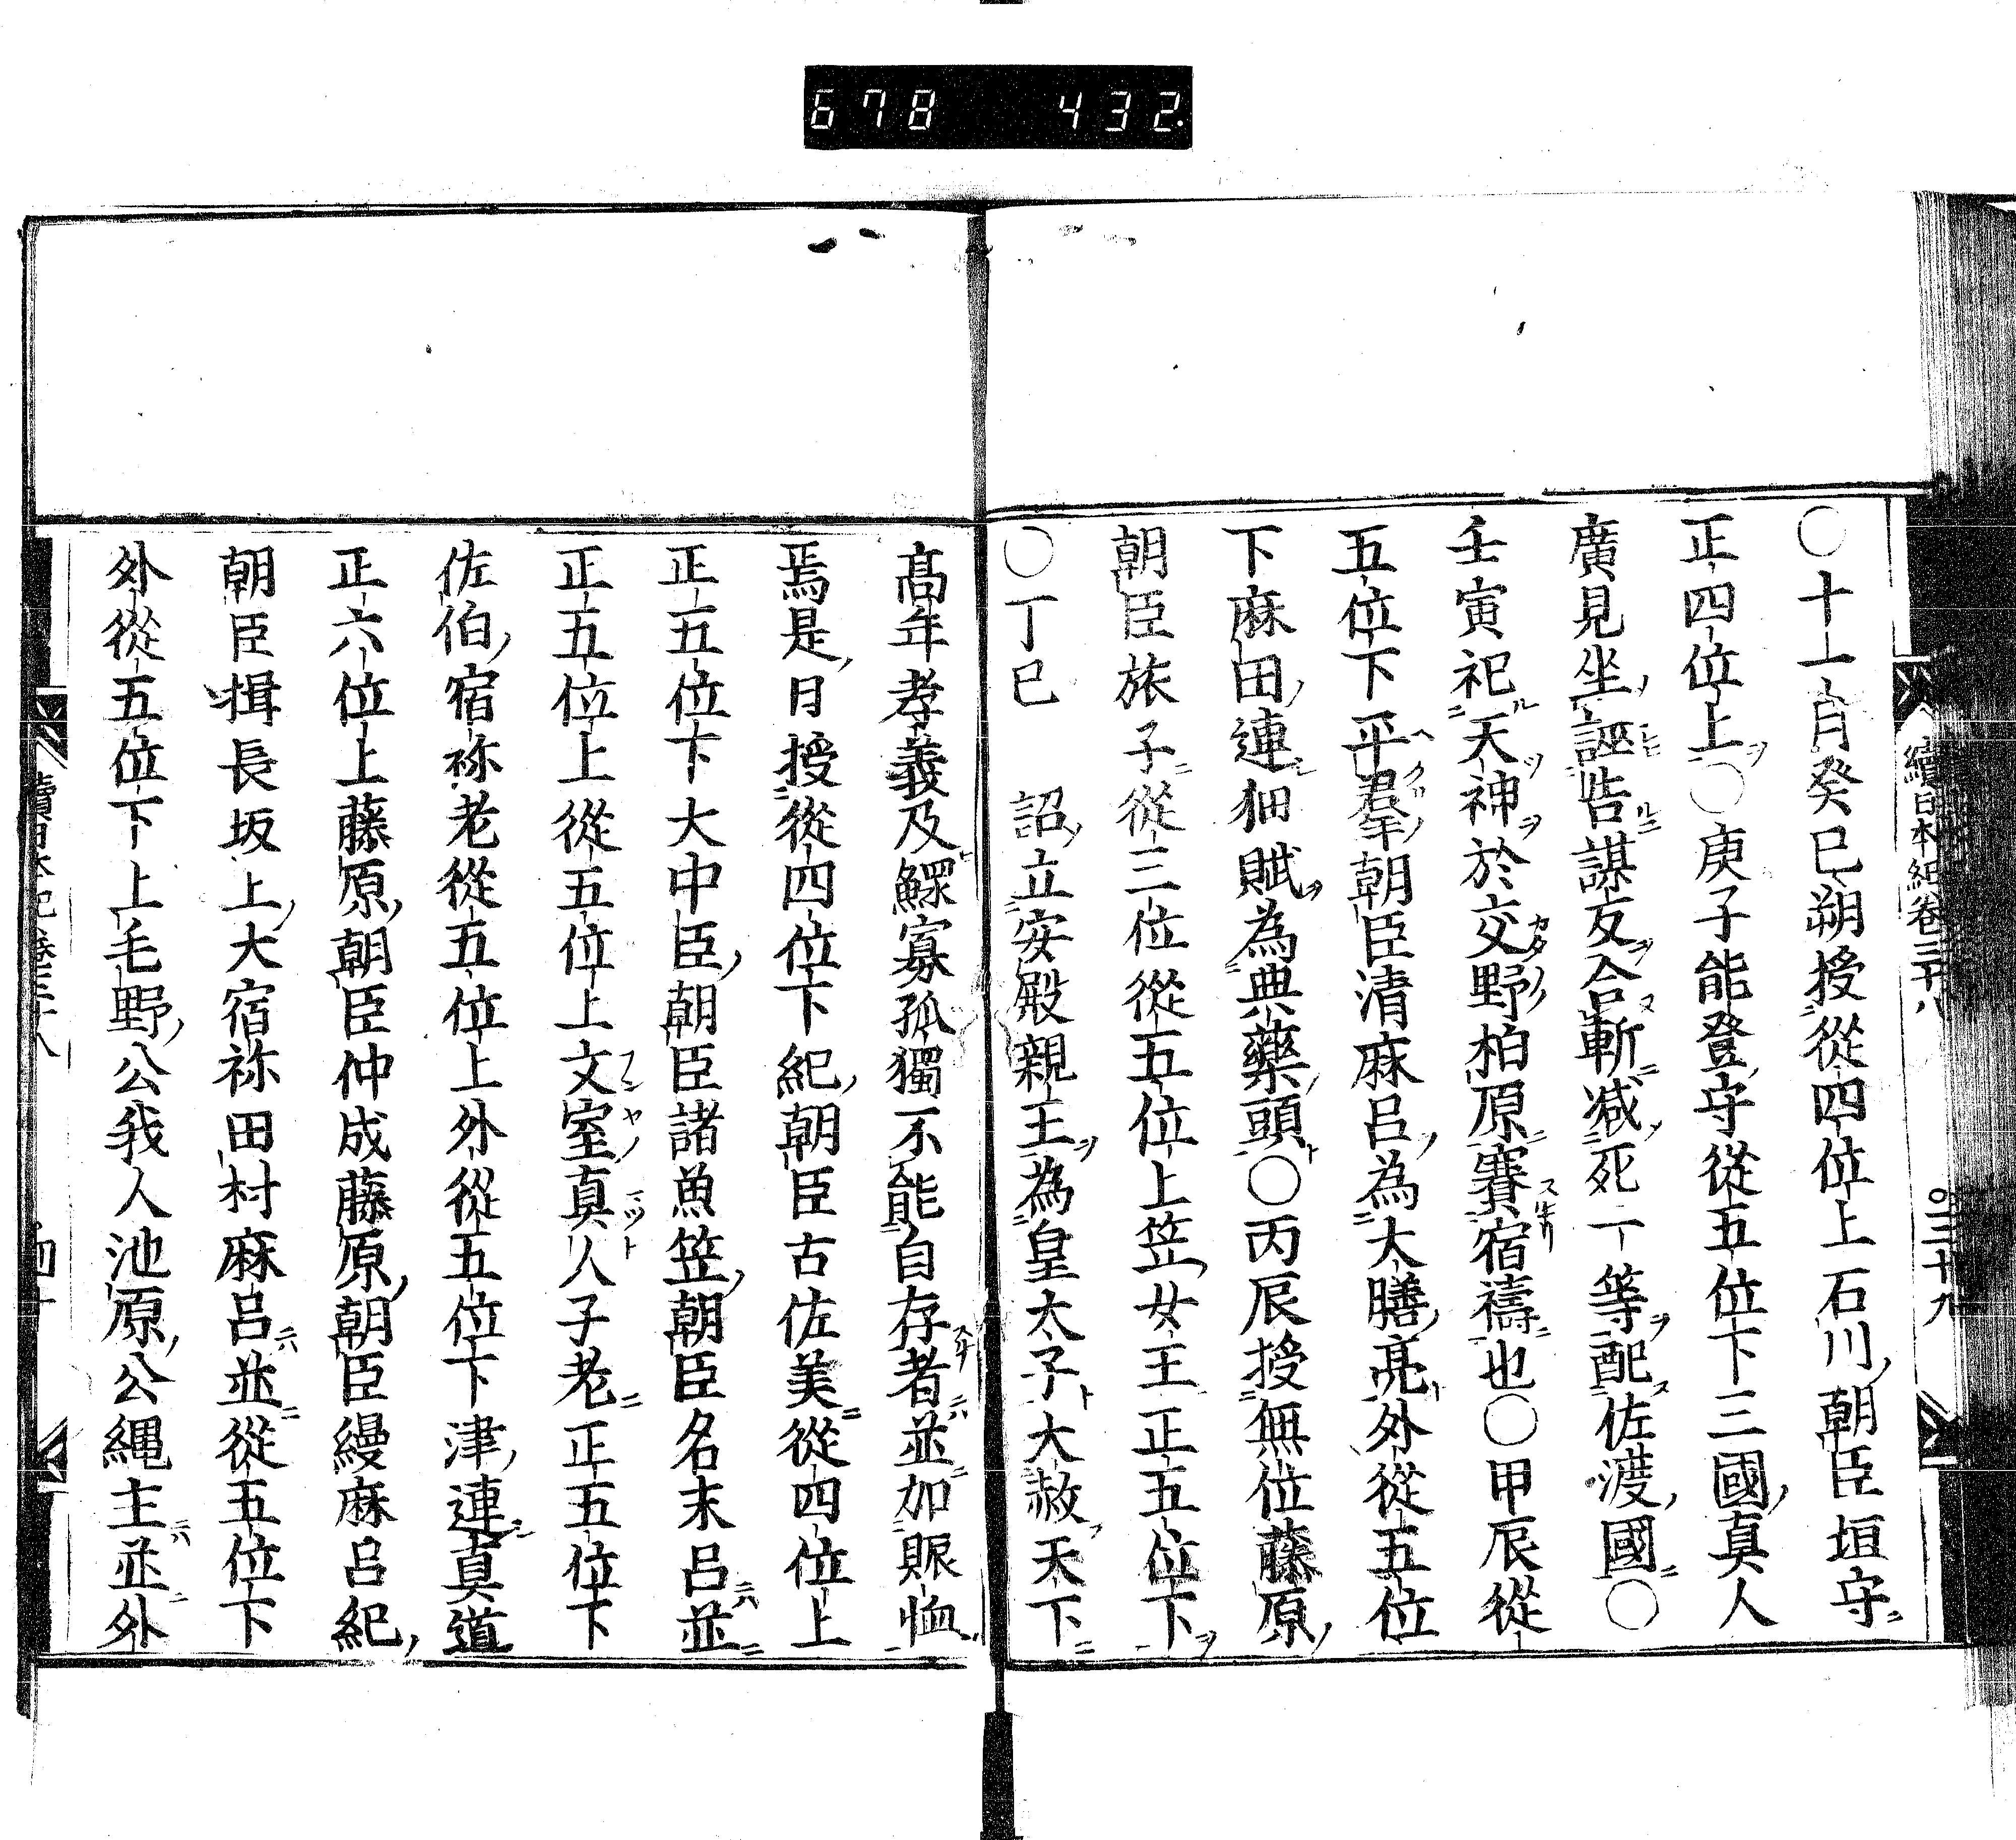 678 432.
續日本紀卷三十八
三十九
〇十一月癸巳朔授從四位上石川朝臣垣守
正四位上〇庚子能登守從五位下三國真人
廣見坐誣告謀反合斬減死一等配佐渡國〇
壬寅祀天神於交野柏原賽宿禱也〇甲辰從
五位下平羣朝臣清麻呂為大膳亮外從五位
下麻田連畋賦為典藥頭〇丙辰授無位藤原
朝臣旅子從三位從五位上笠女王正五位下
〇丁巳　詔立安殿親王為皇太子大赦天下
高年孝義及鰥寡孤獨不能自存者並加賑恤
焉是日授從四位下紀朝臣古佐美從四位上
正五位下大中臣朝臣諸魚笠朝臣名末呂並
正五位上從五位上文室真人子老正五位下
佐伯宿祢老從五位上外從五位下津連真道
正六位上藤原朝臣仲成藤原朝臣縵麻呂紀
朝臣揖長坂上大宿祢田村麻呂並從五位下
外從五位下上毛野公我人池原公繩主並外
續日本紀卷三十八